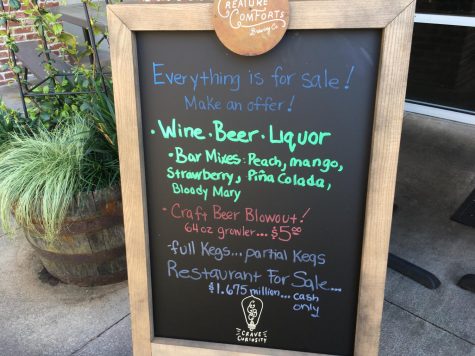 CREATURE
COMFORTS
Brewing Co.
Everything is for sale!
Make an offer!
• Wine • Beer • Liquor
• Bar Mixes: Peach, mango,
Strawberry, Piña Colada,
Bloody Mary
• Craft Beer Blowout!
64oz growler... $5.00
-full Kegs... partial Kegs
Restaurant For Sale...
$1.675 million... cash
only
CRAVE
CURIOSITY